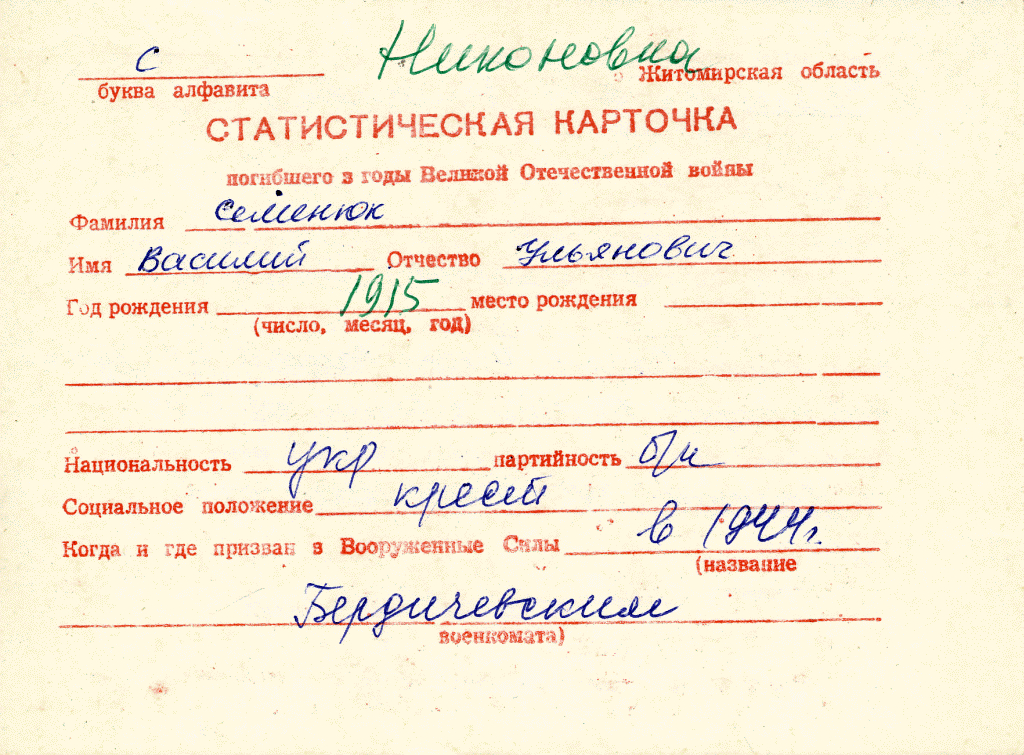 с Никоновка
буква алфавита Житомирская область
СТАТИСТИЧЕСКАЯ КАРТОЧКА
погибшего в годы Великой Отечественной войны
Фамилия Семенюк
Имя Василий Отчество Ульянович
Год рождения 1915 место рождения
(число, месяц, год)
Национальность укр партийность б/п
Социальное положение крест
Когда и где призван в Вооруженные Силы в 1944г.
(название
Бердичевским
военкомата)